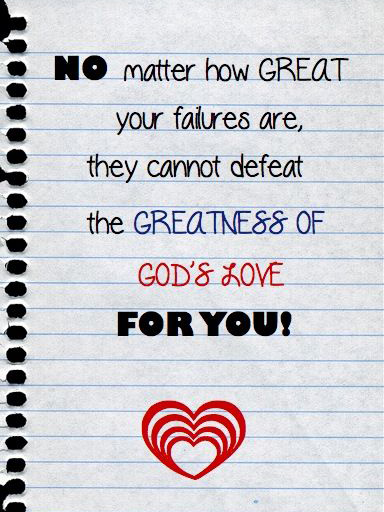 NO matter how GREAT
your failures are,
they cannot defeat
the GREATNESS OF
GOD'S LOVE
FOR YOU!